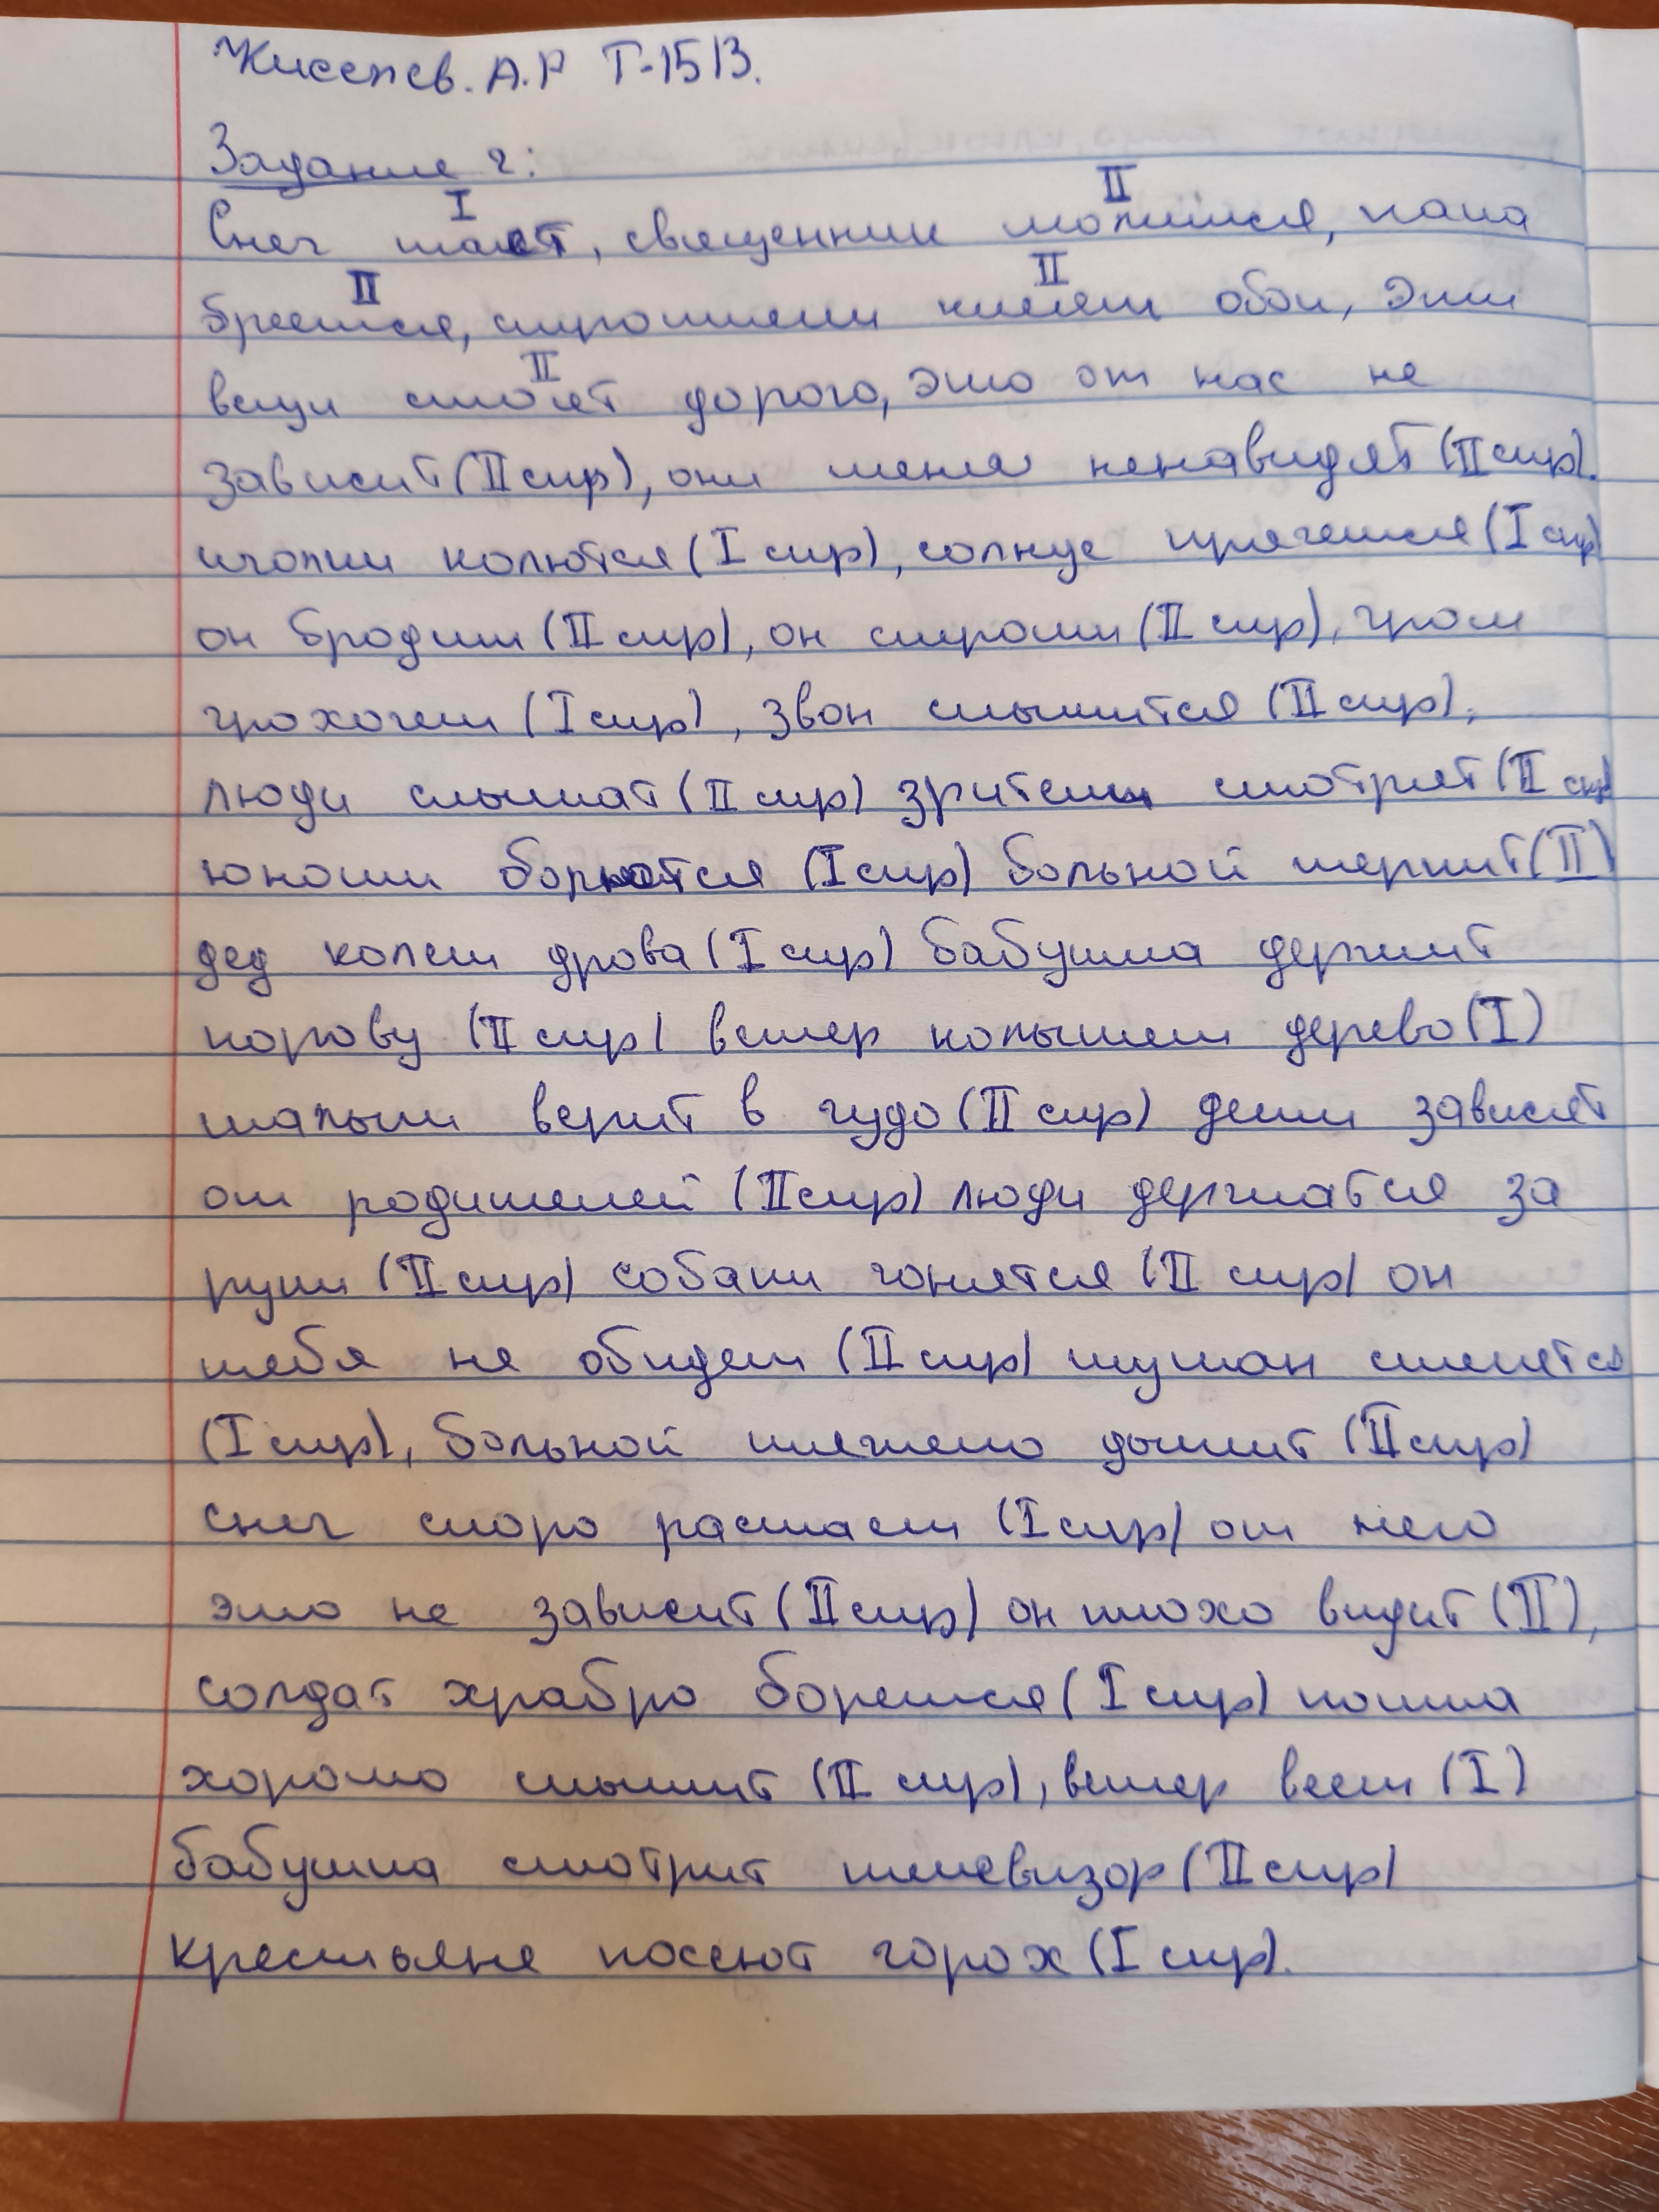 Киселев. А.Р Т-151З.
Задание 2:
I II
Снег тает, священник молится, папа
II II
бреется, строители клеят обои, эти
II
вещи стоят дорого, это от нас не
зависит (II спр), они меня ненавидят (II спр).
иголки колются (I спр), солнце прячется (I спр)
он бродит (II спр), он строит (II спр), гром
грохочет (I спр), звон слышится (II спр),
люди слышат (II спр) зрители смотрят (II спр)
юноши борются (I спр) больной терпит (II)
дед колет дрова (I спр) бабушка держит
корову (II спр) ветер колышет дерево (I)
малыш верит в чудо (II спр) дети зависят
от родителей (II спр) люди держатся за
руки (II спр) собаки гонятся (II спр) он
тебя не обидет (II спр) туман стелится
(I спр), больной тяжело дышит (II спр)
снег скоро растает (I спр) от него
это не зависит (II спр) он плохо видит (II),
солдат храбро борется (I спр) кошка
хорошо слышит (II спр), ветер веет (I)
бабушка смотрит телевизор (II спр)
крестьяне посеют горох (I спр).